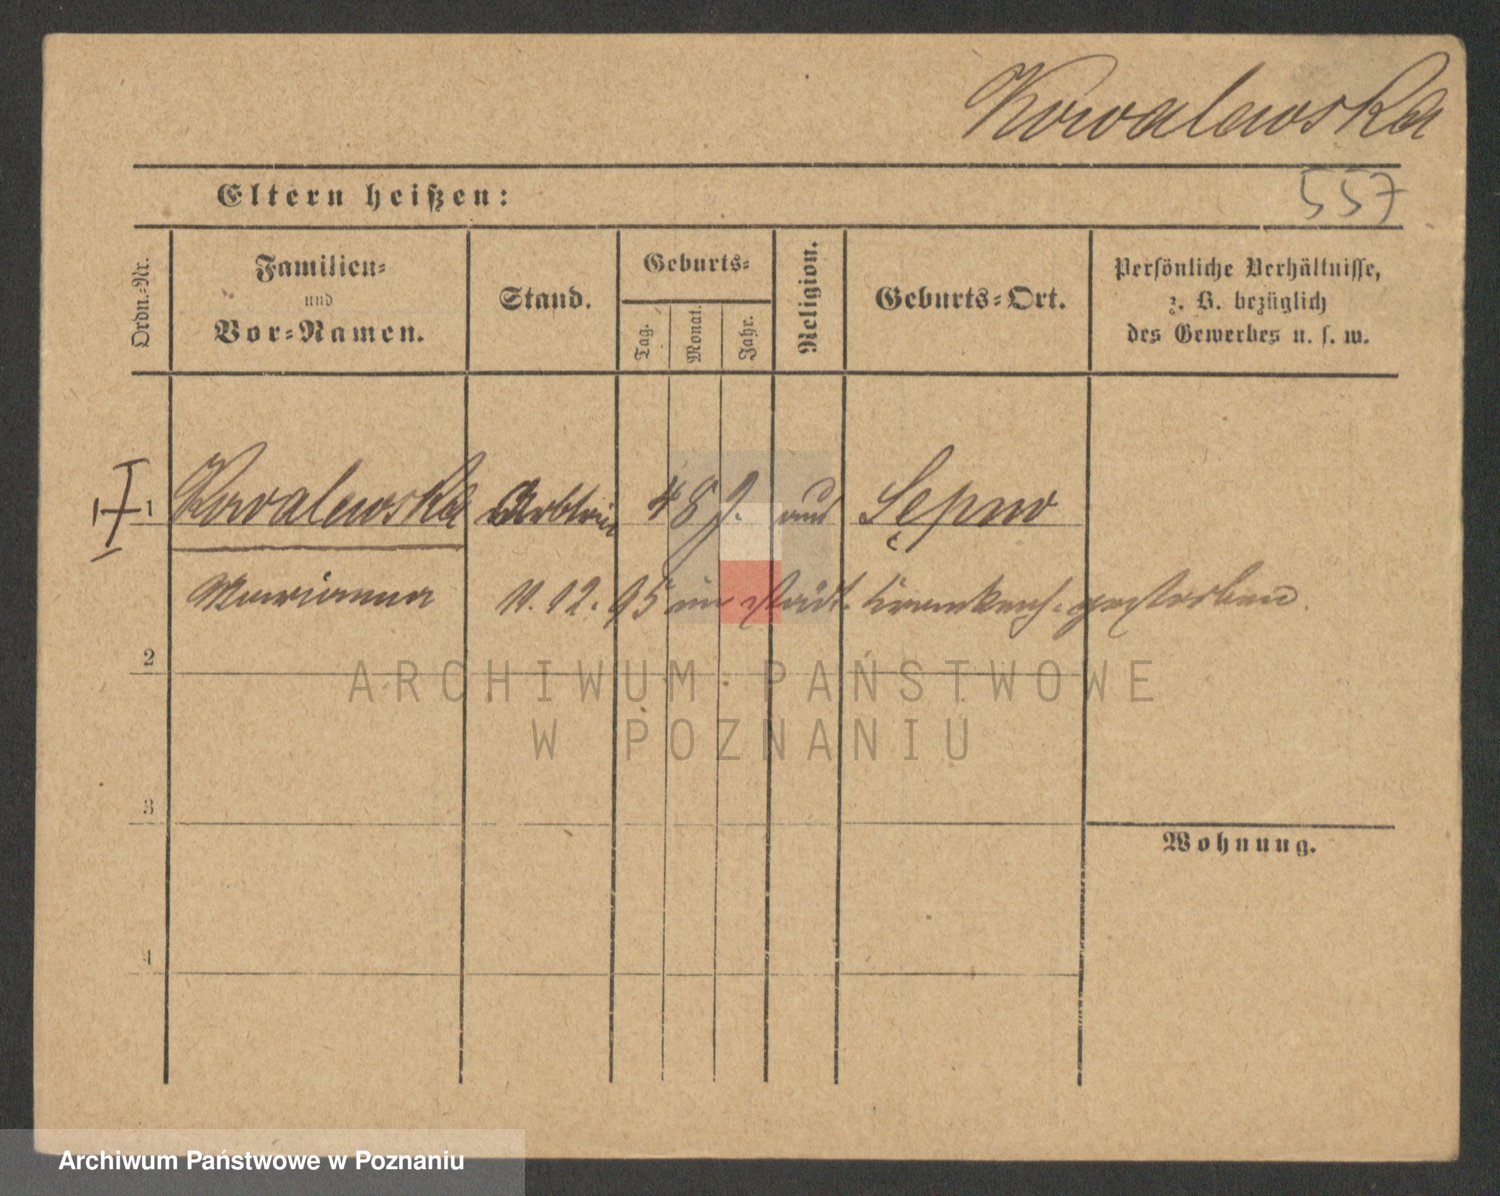 Kowalewska
Eltern heißen:
557
Ordn.-Nr.
Familien-
und
Vor-Namen.
Stand.
Geburts-
Tag.
Monat.
Jahr.
Religion.
Geburts-Ort.
Persönliche Verhältnisse,
z. B. bezüglich
des Gewerbes u. s. w.
1 Kowalewska Arbtrin 48 J. aus Sępno
Marianna 11.12.95 im städt. Krankenh. gestorben.
2
ARCHIWUM PAŃSTWOWE
W POZNANIU
3
Wohnung.
4
Archiwum Państwowe w Poznaniu